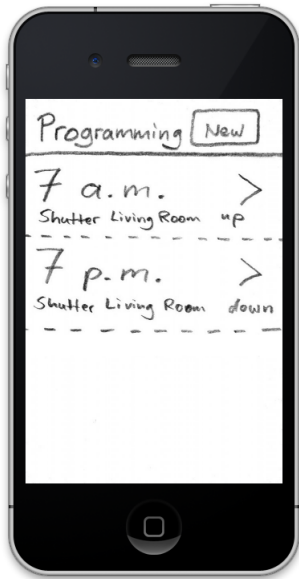 Programming New
7 a.m. >
Shutter Living Room up
7 p.m. >
Shutter Living Room down